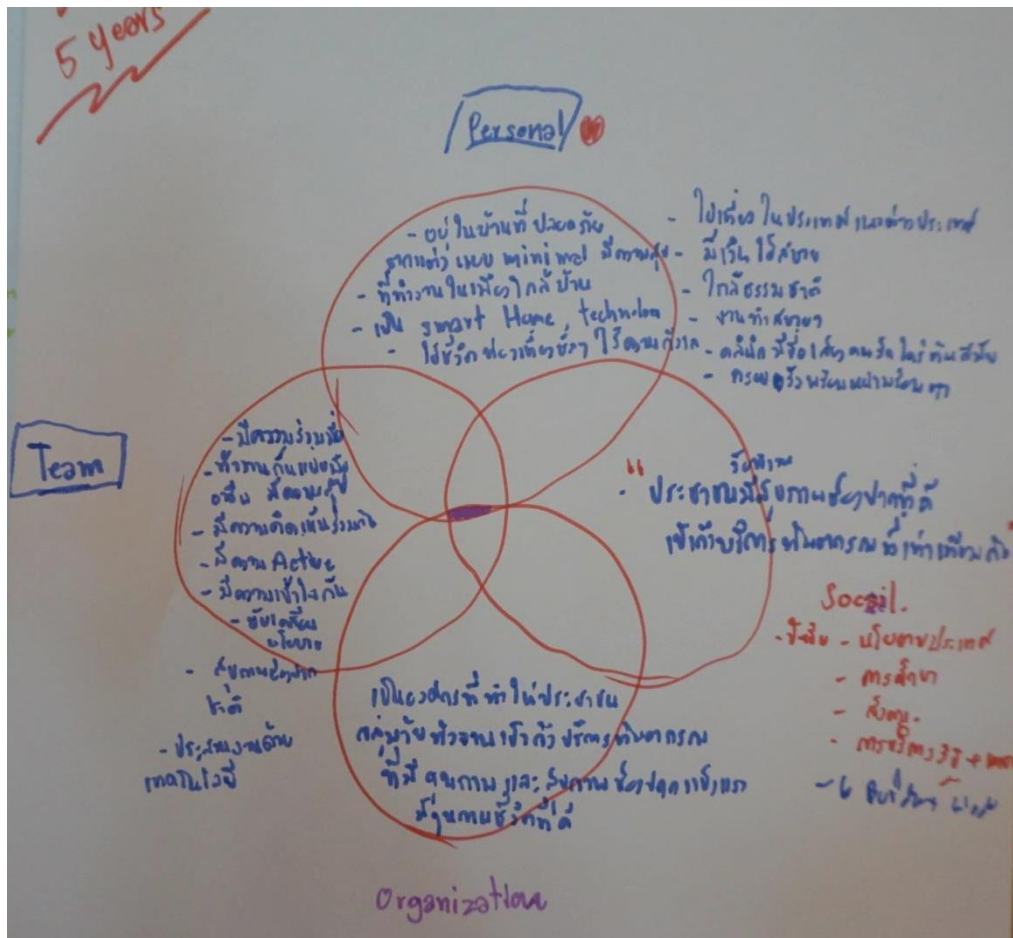 5 years
Personal
- อยู่ในบ้านที่ปลอดภัย
ตกแต่งแบบ minimal มีความสุข
- ที่ทำงานในเมืองใกล้บ้าน
- เป็น smart Home technology
- ใช้ชีวิตท่องเที่ยว
- ไปเที่ยวในประเทศและต่างประเทศ
- มีเงินใช้สบาย
- ใกล้ธรรมชาติ
- งานทำสบายๆ
- คลินิกมีชื่อเสียง
- ครอบครัวพร้อมหน้าพร้อมตา
Team
- มีความร่วมมือ
- ทำงานกันแบบมือ
อาชีพ มีความสุข
- มีความคิดเห็นร่วมกัน
- มีความ Active
- มีความเข้าใจกัน
- ขับเคลื่อน
นโยบาย
- สุขภาพช่องปาก
ชาติ
- ประสานงานด้วย
เทคโนโลยี
"
- ประชาชนมีสุขภาพช่องปากที่ดี
เข้าถึงบริการทันตกรรมได้เท่าเทียมกัน
Socail.
- ปัจจัย - นโยบายประเทศ
- การศึกษา
- สังคม.
- การบริการ
- 6
เป็นองค์กรที่ทำให้ประชาชน
กลุ่มวัยทำงานเข้าถึงบริการทันตกรรม
ที่มีคุณภาพ และสุขภาพช่องปากแข็งแรง
มีคุณภาพชีวิตที่ดี
Organization